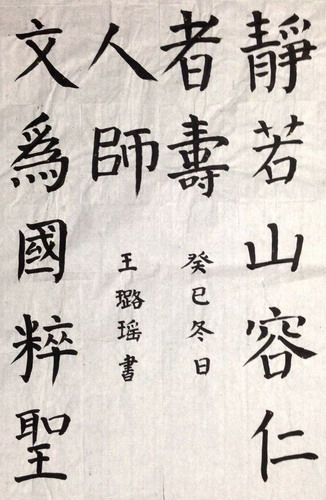 靜若山容仁
者壽
癸巳冬日
文爲國粹聖
人師
王璐瑶書